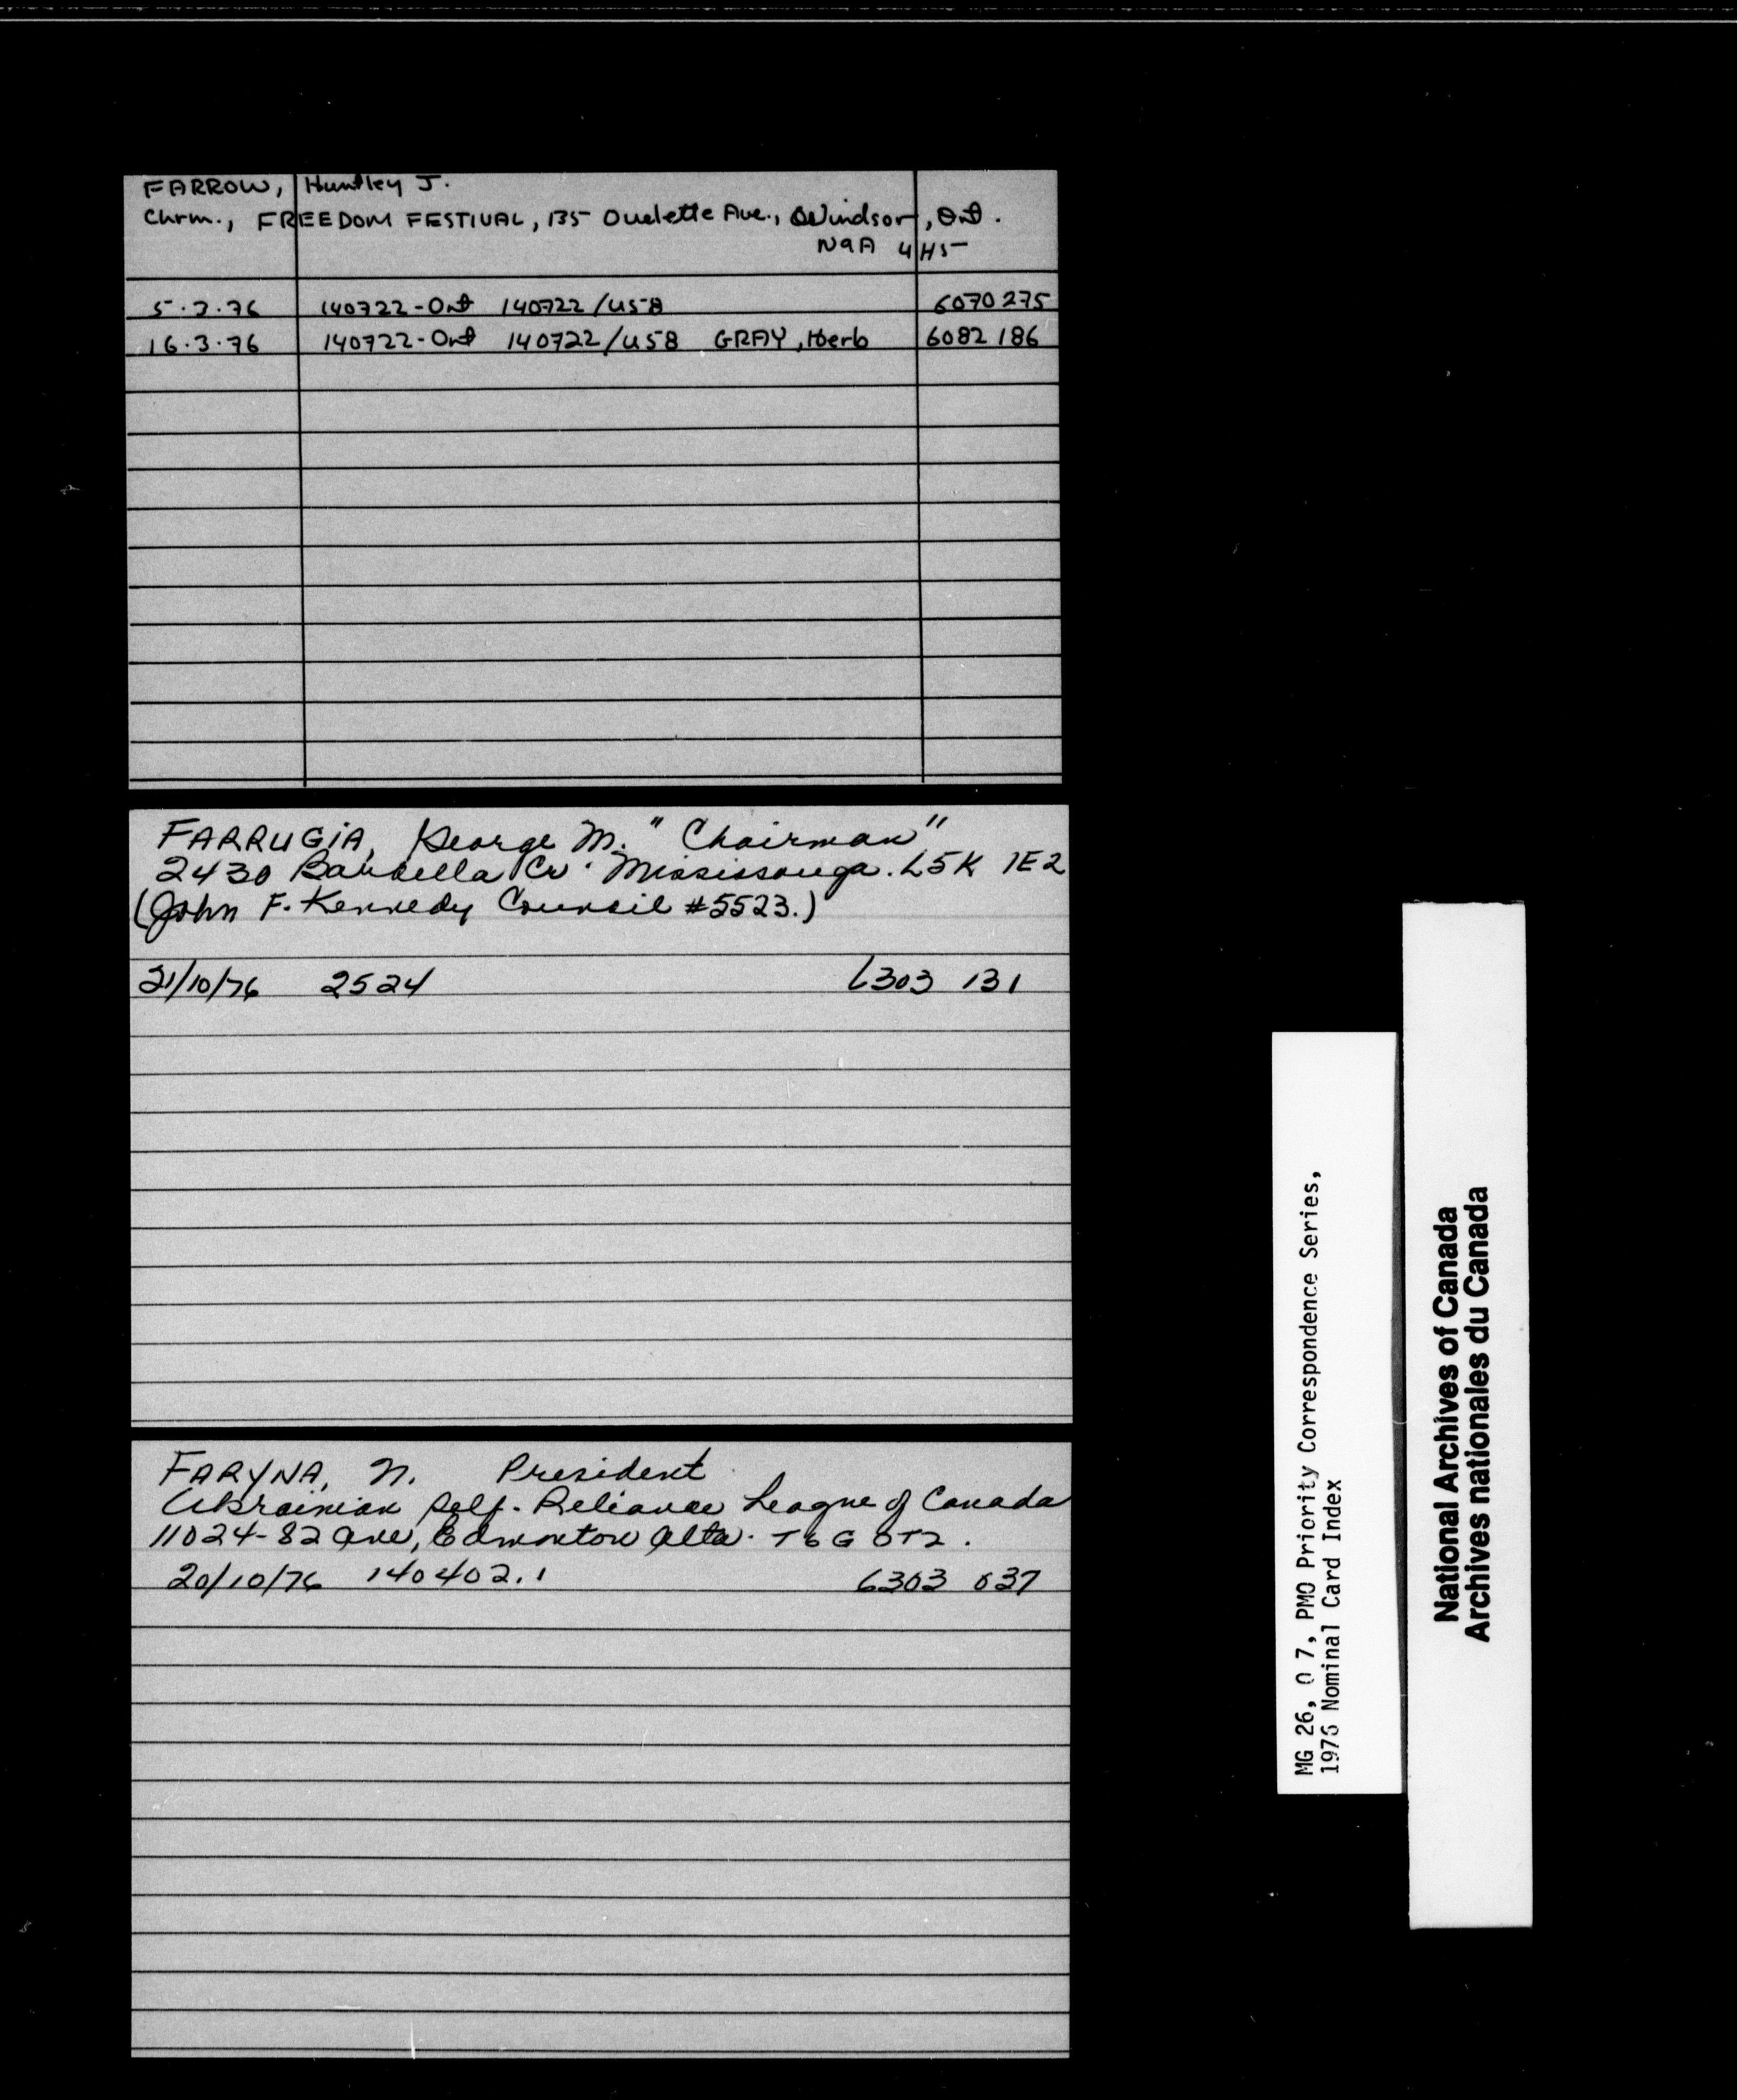 FARROW, Huntley J.
Chrm., FREEDOM FESTIVAL, 135 Ouelette Ave., Windsor, Ont.
N9A 4H5
5.3.76 140722-Ont 140722/U58 6070275
16.3.76 140722-Ont 140722/U58 GRAY, Herb 6082186
FARRUGIA, George M. "Chairman"
2430 Cr. Mississauga. L5K 1E2
(John F. Kennedy Council #5523.)
21/10/76 2524 6303 131
FARYNA, N. President
Ukrainian Self-Reliance League of Canada
11024-82 Ave, Edmonton Alta. T6G 0T2.
20/10/76 140402.1 6303 037
MG 26, O 7, PMO Priority Correspondence Series,
1976 Nominal Card Index
National Archives of Canada
Archives nationales du Canada